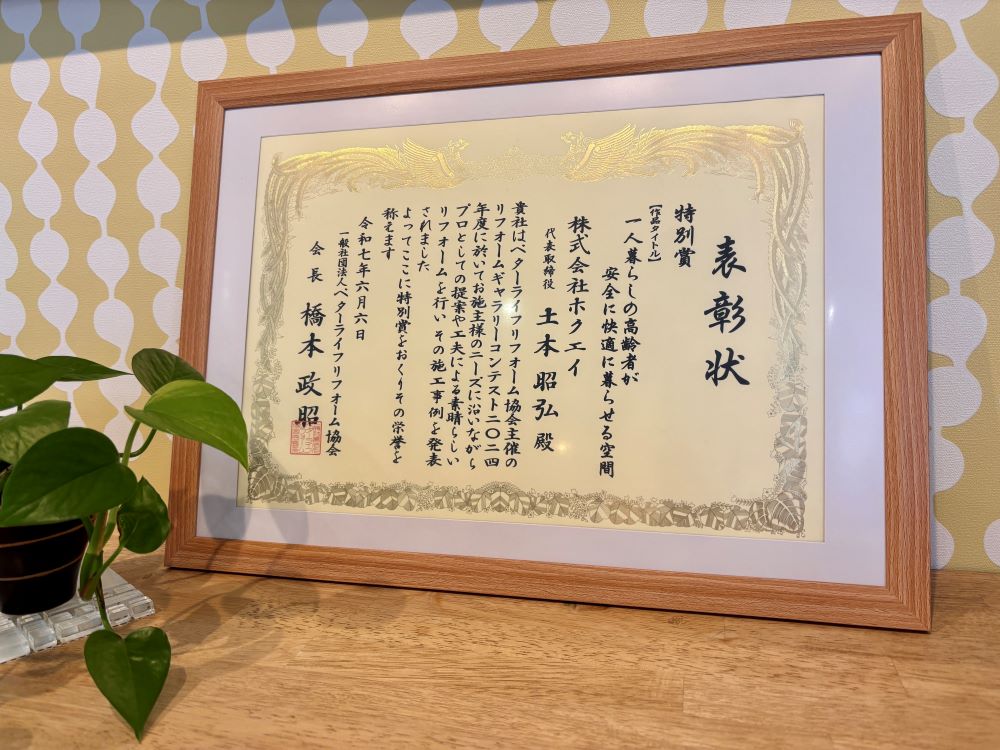 表彰状
特別賞
【作品タイトル】
一人暮らしの高齢者が
安全に快適に暮らせる空間
株式会社ホクエイ
代表取締役 土本昭弘殿
貴社はベターライフリフォーム協会主催の
リフォームギャラリーコンテスト二〇二四
年度に於いてお施主様のニーズに沿いながら
プロとしての提案や工夫による素晴らしい
リフォームを行い その施工事例を発表
されました
よってここに特別賞をおくりその栄誉を
称えます
令和七年六月六日
一般社団法人ベターライフリフォーム協会
会長 橋本政昭